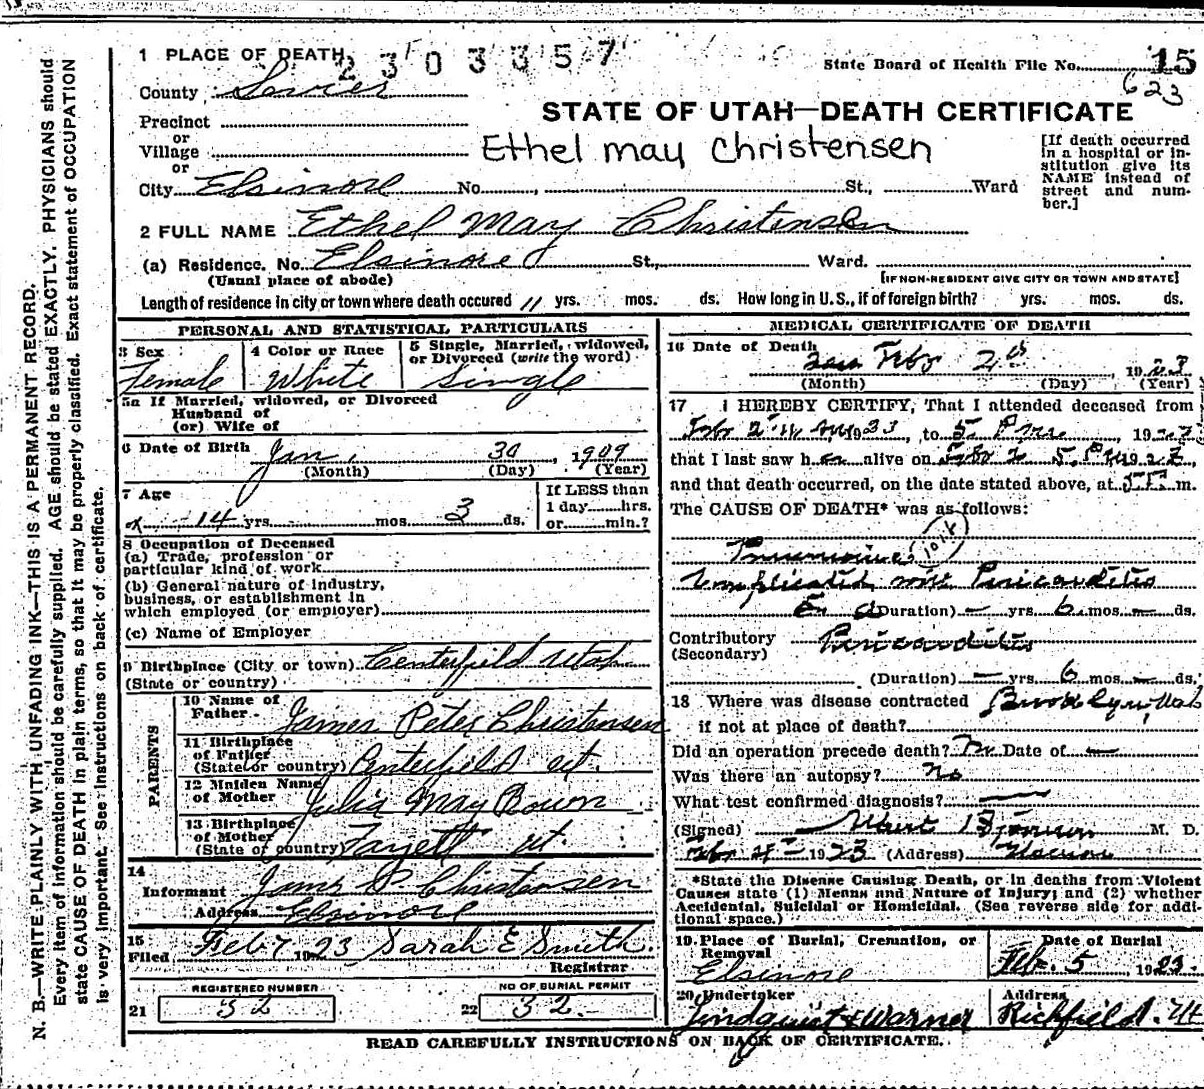 1 PLACE OF DEATH 2303357
State Board of Health File No. 15
623
County Sevier
STATE OF UTAH—DEATH CERTIFICATE
Precinct
or
Village
or
Ethel may christensen
[If death occurred
in a hospital or in-
stitution give its
NAME instead of
street and num-
ber.]
City Elsinore No. , St., Ward
2 FULL NAME Ethel May Christensen
(a) Residence. No. Elsinore St., Ward.
(Usual place of abode)
[IF NON-RESIDENT GIVE CITY OR TOWN AND STATE]
Length of residence in city or town where death occured 11 yrs. mos. ds. How long in U.S., if of foreign birth? yrs. mos. ds.
PERSONAL AND STATISTICAL PARTICULARS
3 Sex
Female
4 Color or Race
White
5 Single, Married, widowed,
or Divorced (write the word)
Single
5a If Married, widowed, or Divorced
Husband of
(or) Wife of
6 Date of Birth Jan. 30, 1909
(Month) (Day) (Year)
7 Age
14 yrs. mos. 3 ds.
If LESS than
1 day hrs.
or min.?
8 Occupation of Deceased
(a) Trade, profession or
particular kind of work
(b) General nature of industry,
business, or establishment in
which employed (or employer)
(c) Name of Employer
9 Birthplace (City or town) Centerfield Utah
(State or country)
PARENTS
10 Name of
Father James Peter Christensen
11 Birthplace
of Father
(State or country) Centerfield ut.
12 Maiden Name
of Mother Julia May Bown
13 Birthplace
of Mother
(State or country) Fayett ut.
14
Informant James P Christensen
Address Elsinore
15
Filed Feb 7 1923 Sarah E Smith.
Registrar
REGISTERED NUMBER
21 32
NO OF BURIAL PERMIT
22 32
MEDICAL CERTIFICATE OF DEATH
16 Date of Death
Feb 2 19
(Month) (Day) (Year)
17 I HEREBY CERTIFY, That I attended deceased from
Feb 2 , to 5. P , 19
that I last saw h alive on 5. P 19
and that death occurred, on the date stated above, at m.
The CAUSE OF DEATH* was as follows:
Pneumonia
Complicated Pericarditis
(Duration) — yrs. 6 mos. — ds.
Contributory Pericarditis
(Secondary)
(Duration) — yrs. 6 mos. — ds.
18 Where was disease contracted Brooklyn, Utah
if not at place of death?
Did an operation precede death? No Date of —
Was there an autopsy? No
What test confirmed diagnosis? —
(Signed) M. D.
Feb 1923 (Address)
*State the Disease Causing Death, or in deaths from Violent
Causes state (1) Menns and Nature of Injury; and (2) whether
Accidental, Suicidal or Homicidal. (See reverse side for addi-
tional space.)
19 Place of Burial, Cremation, or
Removal
Elsinore
Date of Burial
Feb. 5, 1923.
20 Undertaker
Lindquist & Warner
Address
Richfield. Ut
READ CAREFULLY INSTRUCTIONS ON BACK OF CERTIFICATE.
N. B.—WRITE PLAINLY WITH UNFADING INK—THIS IS A PERMANENT RECORD.
Every item of information should be carefully supplied. AGE should be stated EXACTLY. PHYSICIANS should
state CAUSE OF DEATH in plain terms, so that it may be properly classified. Exact statement of OCCUPATION
is very important. See instructions on back of certificate.